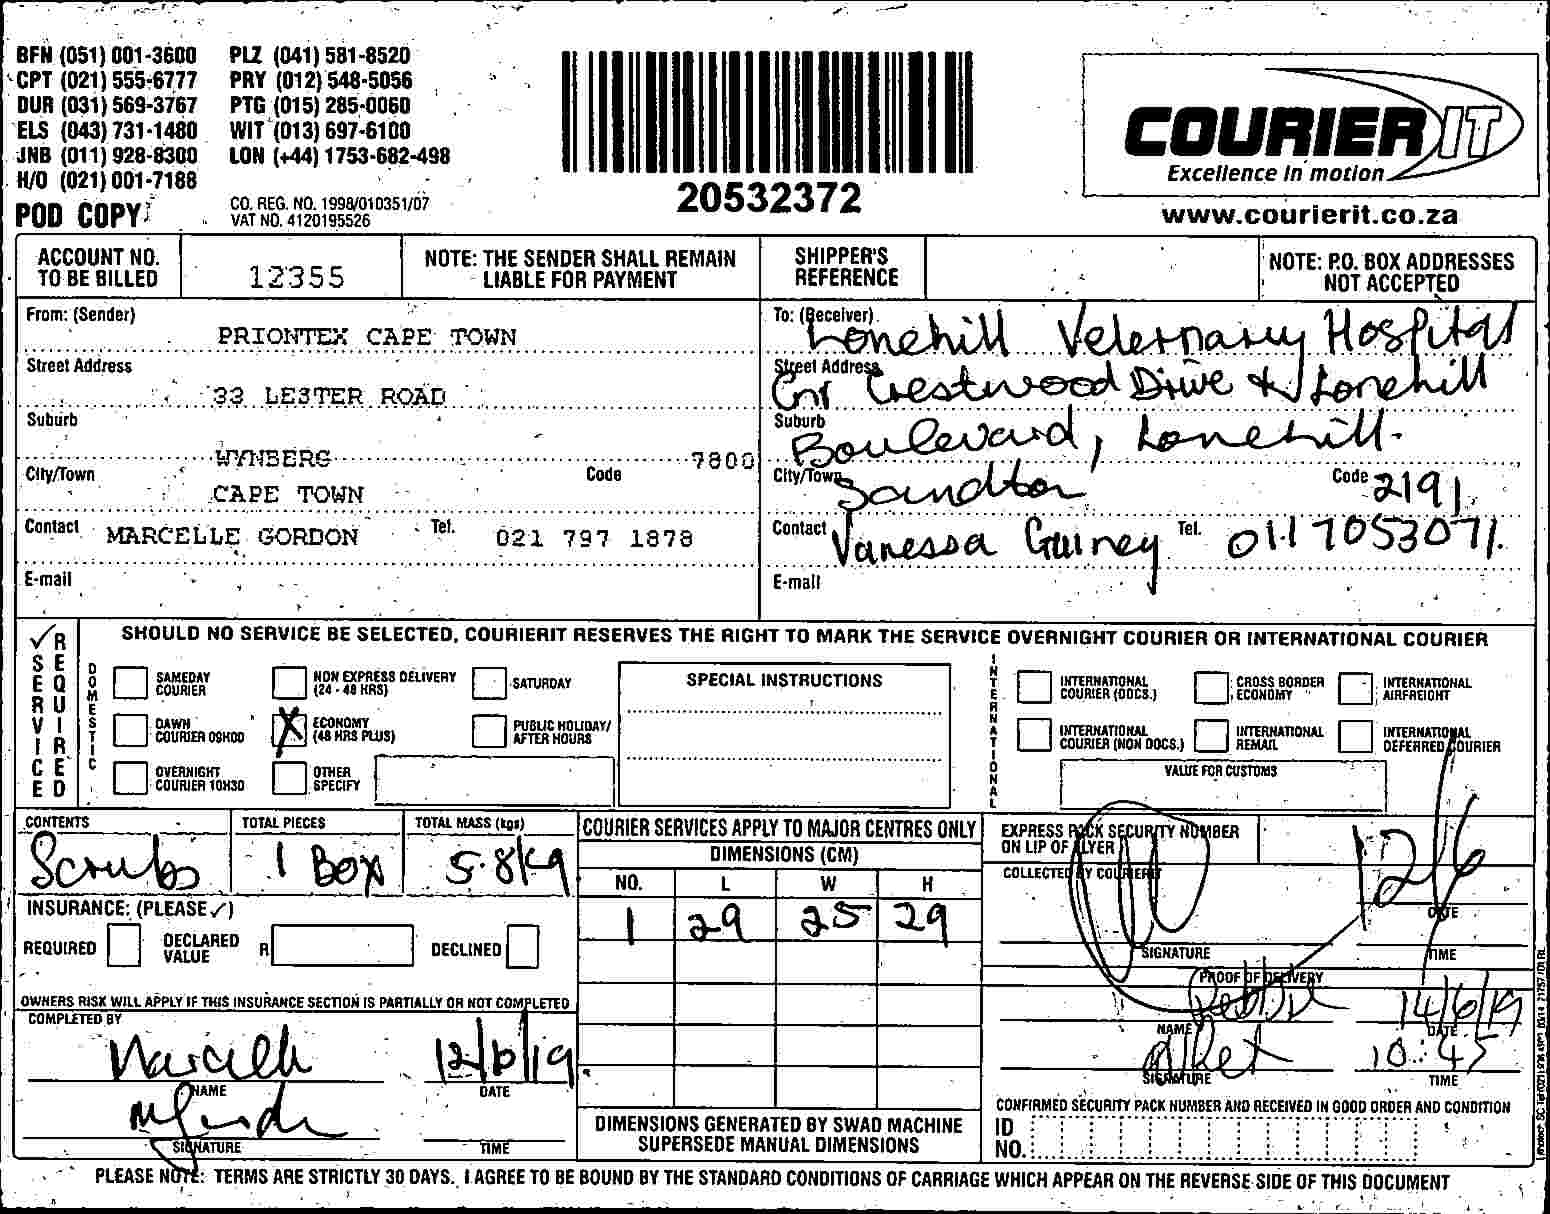 BFN (051) 001-3600 PLZ (041) 581-8520
CPT (021) 555-6777 PRY (012) 548-5056
DUR (031) 569-3767 PTG (015) 285-0060
ELS (043) 731-1480 WIT (013) 697-6100
JNB (011) 928-8300 LON (+44) 1753-682-498
H/O (021) 001-7188
POD COPY
CO. REG. NO. 1998/010351/07
VAT NO. 4120195526
20532372
COURIER IT
Excellence in motion
www.courierit.co.za
ACCOUNT NO. TO BE BILLED 12355
NOTE: THE SENDER SHALL REMAIN LIABLE FOR PAYMENT
SHIPPER'S REFERENCE
NOTE: P.O. BOX ADDRESSES NOT ACCEPTED
From: (Sender) PRIONTEX CAPE TOWN
Street Address 33 LESTER ROAD
Suburb WYNBERG
City/Town CAPE TOWN Code 7800
Contact MARCELLE GORDON Tel. 021 797 1878
E-mail
To: (Receiver) Lonehill Veternary Hospital
Street Address Cnr Crestwood Drive & Lonehill
Suburb Boulevard, Lonehill.
City/Town Sandton Code 2191
Contact Vanessa Guiney Tel. 011 7053071.
E-mail
SERVICE REQUIRED
SHOULD NO SERVICE BE SELECTED, COURIERIT RESERVES THE RIGHT TO MARK THE SERVICE OVERNIGHT COURIER OR INTERNATIONAL COURIER
DOMESTIC
SAMEDAY COURIER
NON EXPRESS DELIVERY (24 - 48 HRS)
SATURDAY
DAWN COURIER 09H00
X ECONOMY (48 HRS PLUS)
PUBLIC HOLIDAY/ AFTER HOURS
OVERNIGHT COURIER 10H30
OTHER SPECIFY
SPECIAL INSTRUCTIONS
INTERNATIONAL
INTERNATIONAL COURIER (DOCS.)
CROSS BORDER ECONOMY
INTERNATIONAL AIRFREIGHT
INTERNATIONAL COURIER (NON DOCS.)
INTERNATIONAL REMAIL
INTERNATIONAL DEFERRED COURIER
VALUE FOR CUSTOMS
CONTENTS Scrubs
TOTAL PIECES 1 Box
TOTAL MASS (kgs) 5.8kg
INSURANCE: (PLEASE ✓)
REQUIRED DECLARED VALUE R DECLINED
OWNERS RISK WILL APPLY IF THIS INSURANCE SECTION IS PARTIALLY OR NOT COMPLETED
COMPLETED BY
Marcelle 12/6/19
NAME DATE
SIGNATURE TIME
COURIER SERVICES APPLY TO MAJOR CENTRES ONLY
DIMENSIONS (CM)
NO. L W H
1 29 25 29
DIMENSIONS GENERATED BY SWAD MACHINE SUPERSEDE MANUAL DIMENSIONS
EXPRESS PACK SECURITY NUMBER ON LIP OF FLYER
COLLECTED BY COURIERIT
12/6
DATE
SIGNATURE TIME
PROOF OF DELIVERY
Debbie 14/6/19
NAME DATE
10:45
SIGNATURE TIME
CONFIRMED SECURITY PACK NUMBER AND RECEIVED IN GOOD ORDER AND CONDITION
ID NO.
PLEASE NOTE: TERMS ARE STRICTLY 30 DAYS. I AGREE TO BE BOUND BY THE STANDARD CONDITIONS OF CARRIAGE WHICH APPEAR ON THE REVERSE SIDE OF THIS DOCUMENT